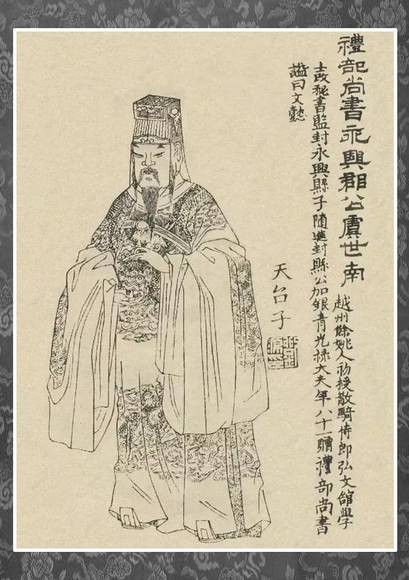 禮部尚書永興郡公虞世南
越州餘姚人初授散騎侍郎弘文館學
士改秘書監封永興縣子隨進封縣公加銀青光祿大夫年八十一贈禮部尚書
謚曰文懿
天台子